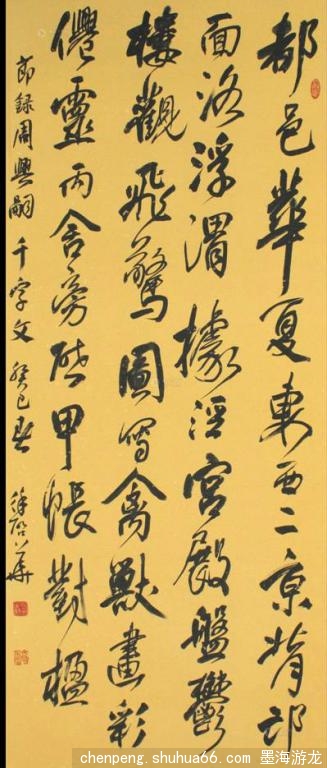 都邑華夏東西二京背邙
面洛浮渭據涇宮殿盤鬱
樓觀飛驚圖寫禽獸畫彩
僊靈丙舍旁啟甲帳對楹
節錄周興嗣千字文癸巳春
chenpeng.shuhua66.com 墨海游龙